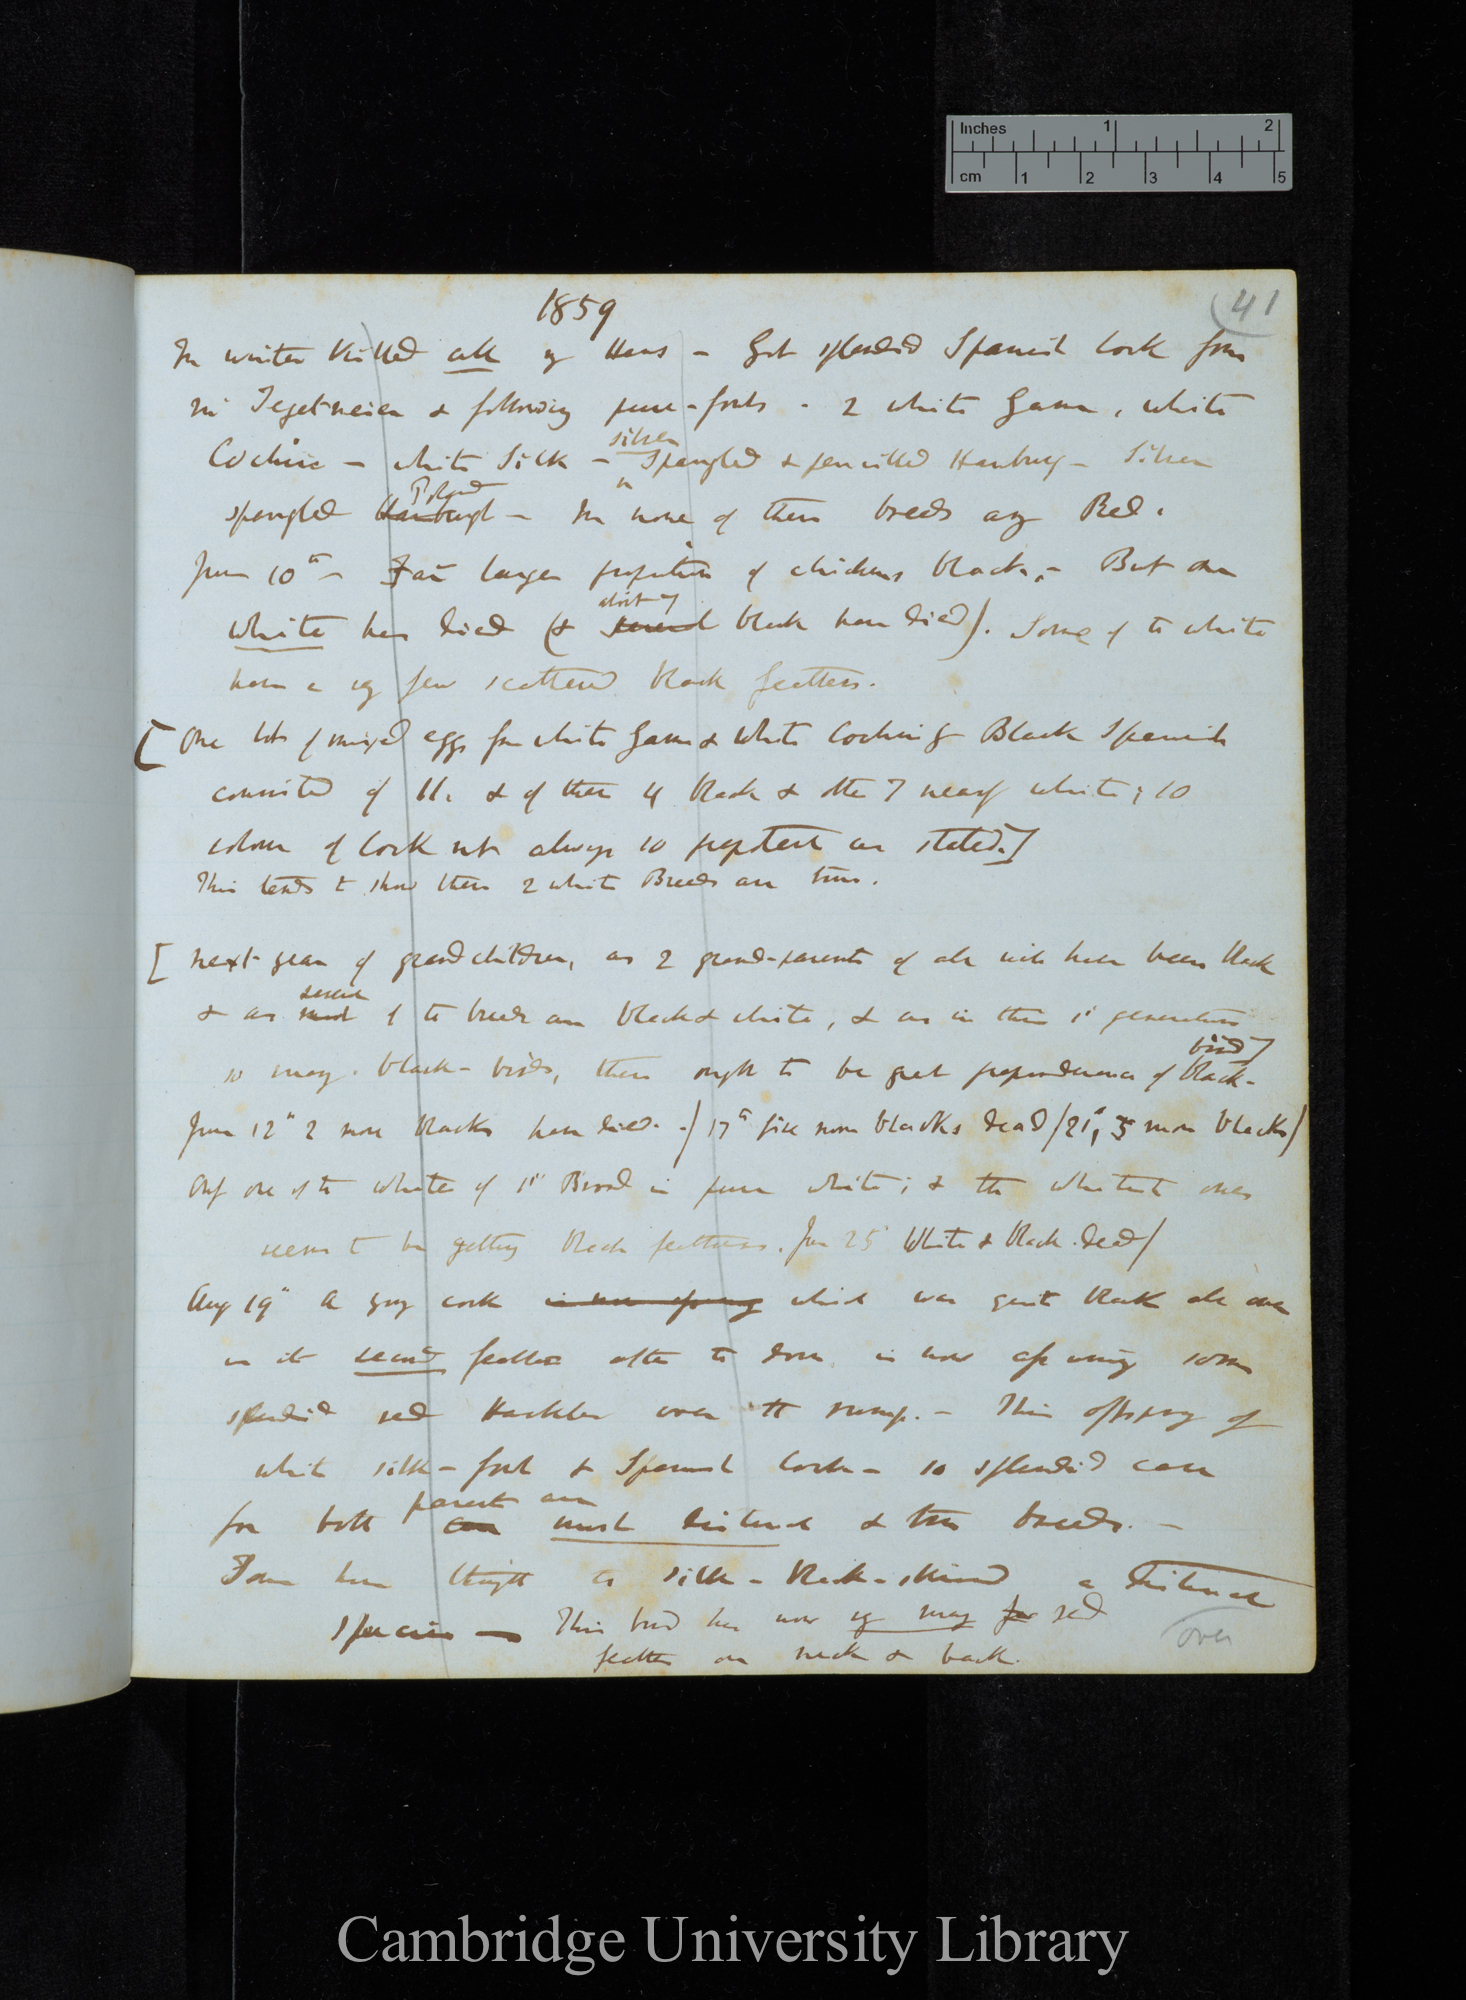 Inches 1 2
cm 1 2 3 4 5
41
1859
In winter killed all my Hens – Got splendid Spanish Cock from
Mr Tegetmeier & following pure-fowls – 2 white Game, white
Cochin – white Silk – silver Spangled & pencilled Hamburg – Silver
spangled Hamburgh Poland – In none of these breeds any Red.
June 10th – Far larger proportion of chickens black, – But one
white has died (& about 7 several black have died). Some of the white
have a very few scattered black feathers.
[One lot of mixed eggs from white Game & White Cochin by Black Spanish
consisted of 11, & of these 4 black & other 7 nearly white; so
colour of Cock not always so prepotent as stated.]
This tends to show these 2 white Breeds are true.
[next year of grandchildren, as 2 grand-parents of all will have been black
& as most several of the breeds are black & white, & as in this 1st generation
so many black-birds, there ought to be great preponderance of black- birds]
June 12th 2 more blacks have died. –/ 17th five more blacks dead/21st, 3 more blacks/
Only one of the whites of 1st Brood is pure white; & the whitest ones
seem to be getting black feathers. June 25 White & black dead/
Aug 19th A young cock is now opening which was quite black all over
in its second feather after the down, is now assuming some
splendid red Hackles over the rump. – This offspring of
white silk-fowl & Spanish Cock – so splendid case
for both are parents are most distinct & true breeds. –
Some have thought a silk-black-skinned a distinct
species — This bird has now very many few red
feathers on neck & back.
over
Cambridge University Library